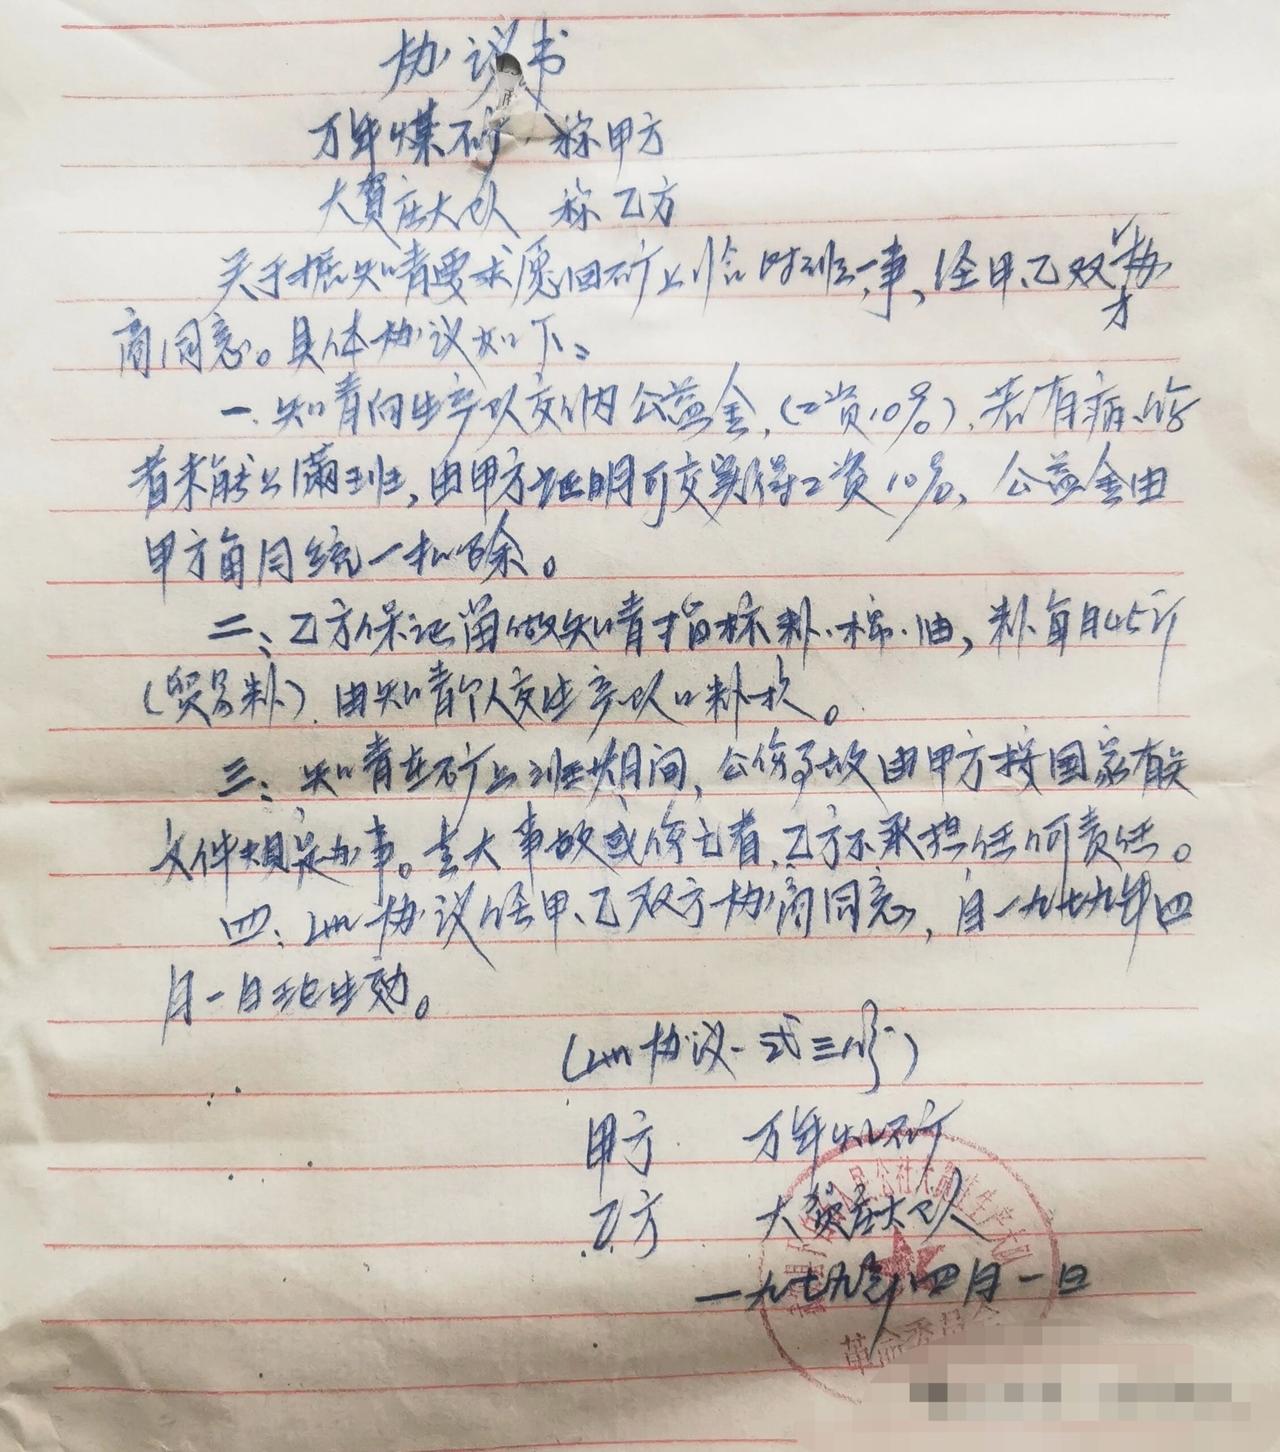 协议书
万年煤矿 称甲方
大贺庄大队 称乙方
关于据知青要求愿回矿上临时班一事，经甲、乙双方协
商同意。具体协议如下：
一、知青向生产队交纳公益金，（工资10%）。若有病、伤
者未能上满班，由甲方证明可交实得工资10%，公益金由
甲方每月统一扣除。
二、乙方保证留做知青指标粮、棉、油，粮每月45斤
（贸易粮）由知青个人交生产队口粮款。
三、知青在矿上班期间，公伤事故由甲方按国家有关
文件规定办事。重大事故或伤亡者，乙方不承担任何责任。
四、此协议经甲、乙双方协商同意，自一九七九年四
月一日起生效。
（此协议一式三份）
甲方 万年煤矿
乙方 大贺庄大队
一九七九年四月一日
人民公社大贺庄生产大队
革命委员会